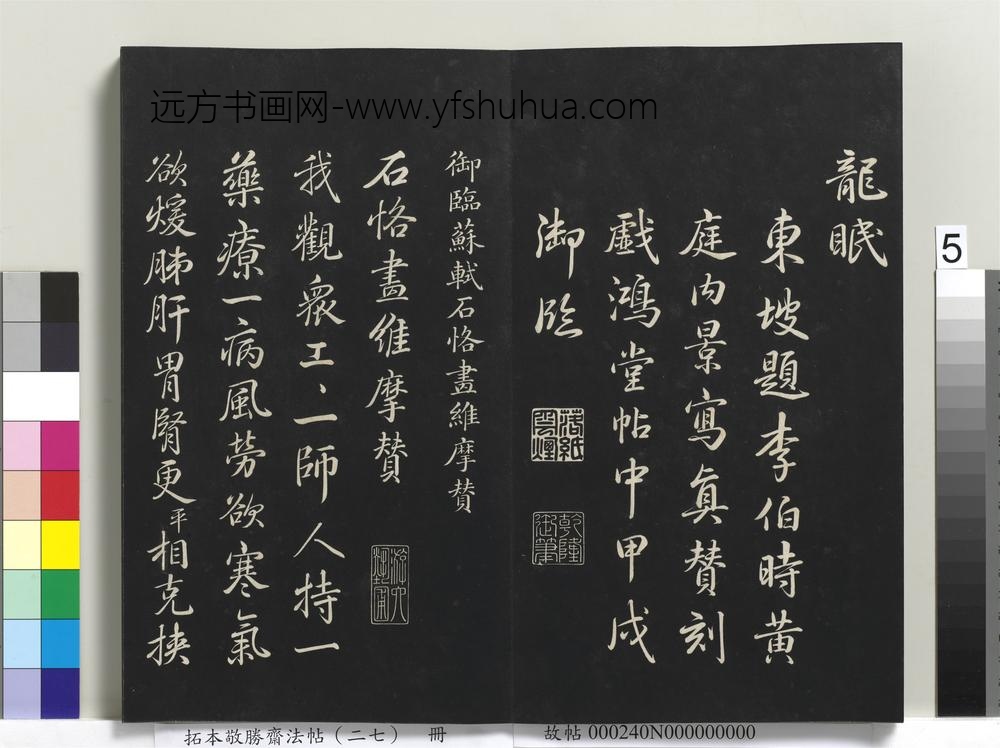 远方书画网-www.yfshuhua.com
龍眠
東坡題李伯時黃
庭内景寫真贊刻
戲鴻堂帖中甲戌
御臨
落紙雲煙
乾隆御筆
御臨蘇軾石恪畫維摩贊
石恪畫維摩贊
我觀衆工=一師人持一
藥療一病風勞欲寒氣
欲煖肺肝胃腎更平相克挾
5
拓本敬勝齋法帖（二七） 冊
故帖 000240N000000000